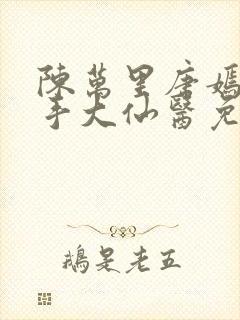 陳萬里唐嫣
手大仙醫免
鵝是老五